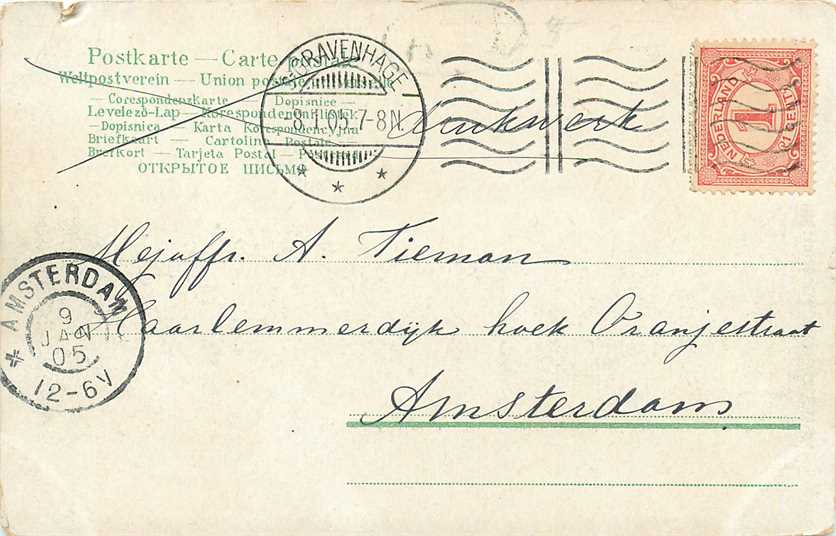 Postkarte — Carte postale
Weltpostverein — Union postale
— Corespondenzkarte — Dopisnice —
Levelező-Lap — Korespondenční lístek
— Dopisnica — Karta Korespondencyjna
Briefkaart — Cartolina Postale
Brefkort — Tarjeta Postal —
ОТКРЫТОЕ ПИСЬМО
'S-GRAVENHAGE
8.1.05.7-8N.
drukwerk
NEDERLAND
1
CENT
Mejuffr. A. Tieman
Haarlemmerdijk hoek Oranjestraat
Amsterdam
AMSTERDAM
9
JAN
05
12-6V